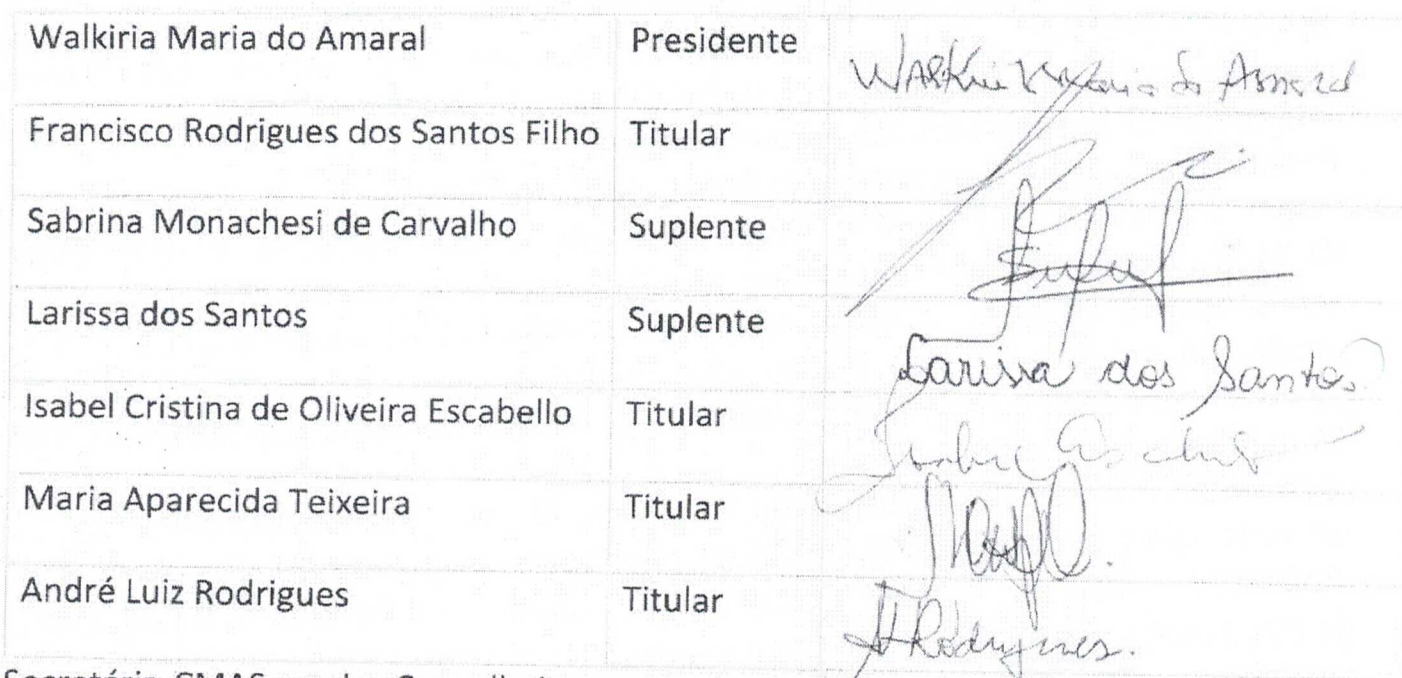 Walkiria Maria do Amaral Presidente Walkiria Maria do Amaral
Francisco Rodrigues dos Santos Filho Titular
Sabrina Monachesi de Carvalho Suplente
Larissa dos Santos Suplente Larissa dos Santos
Isabel Cristina de Oliveira Escabello Titular
Maria Aparecida Teixeira Titular
André Luiz Rodrigues Titular A Rodrigues.
CMAS